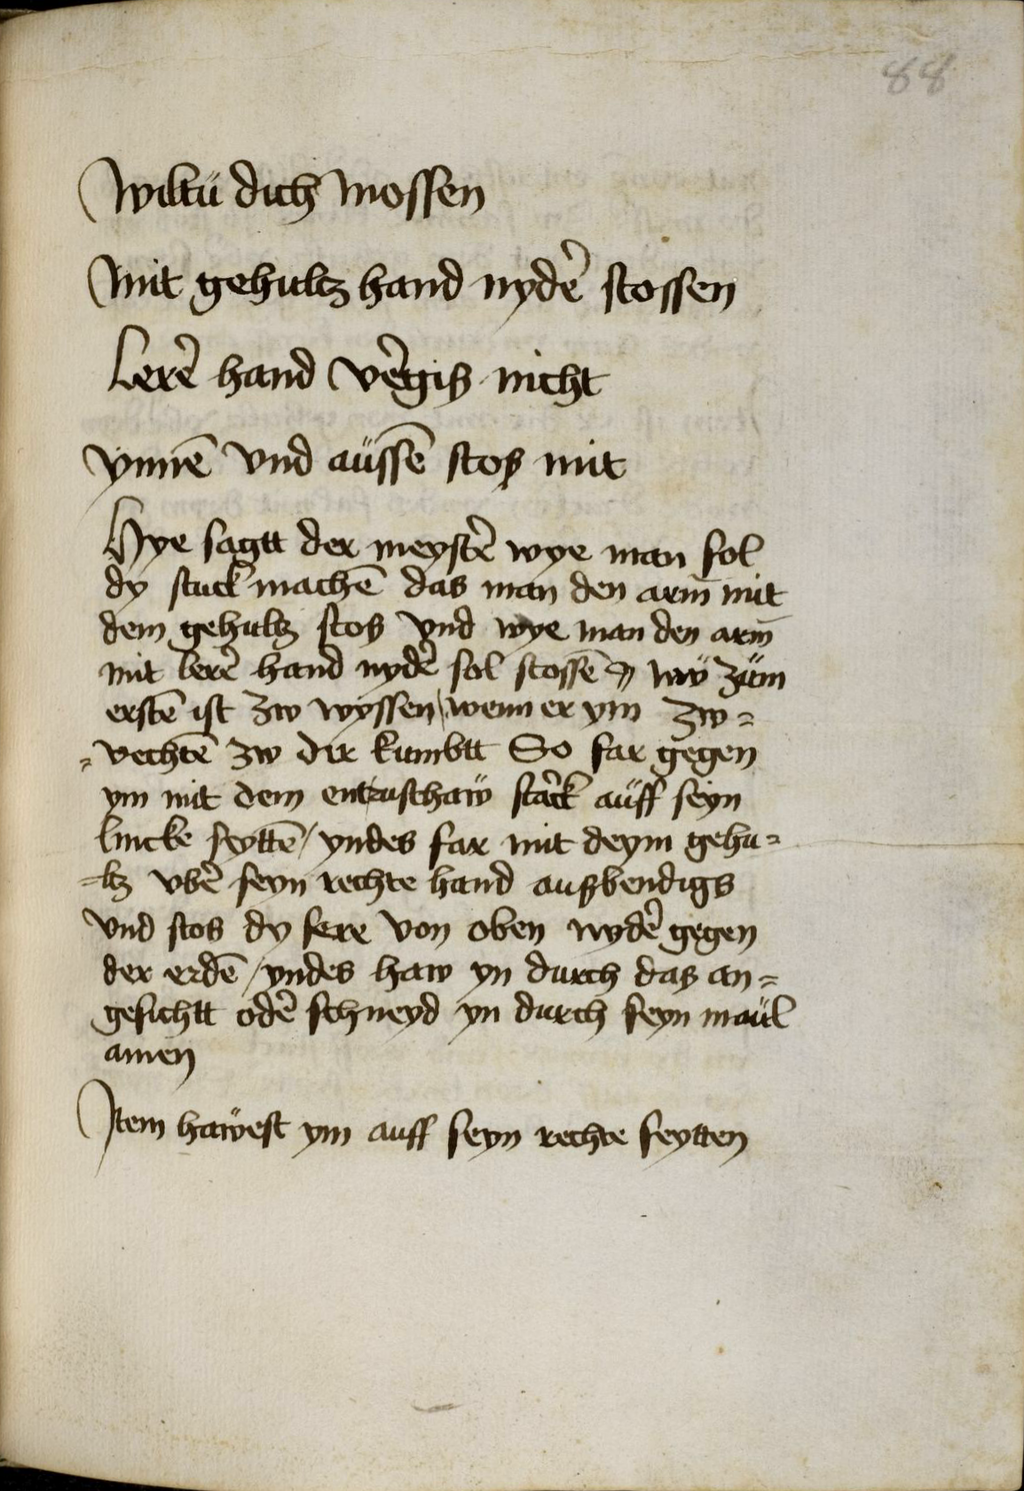 88
Wiltu dich mossen
mit gehultz hand nydẽ stossen
Lerẽ hand vẽgiß nicht
ynnē vnd aüssē stoß mit
Hye sagtt der meystẽ wye man sol
dy stuck machē das man den arm̄ mit
dem gehultz stoß vnd wye man den arm̄
mit lerẽ hand nydẽ sol stossē zü̈m
erstē ist zw wyssen / wenn er ym zw=
=vechtē zw dir kumbtt So far gegen
ym mit dem entrüschaẅ starck aüff seyn
lincke seyttē / yndes far mit deym gehu=
=ltz vbẽ seyn rechte hand außbendigs
vnd stos dy sere von oben nydẽ gegen
der erdē / yndes haw yn durch daß an=
gesichtt odẽ schneyd yn durch seyn maül
amen
Item haẅest ym auff seyn rechte seytten